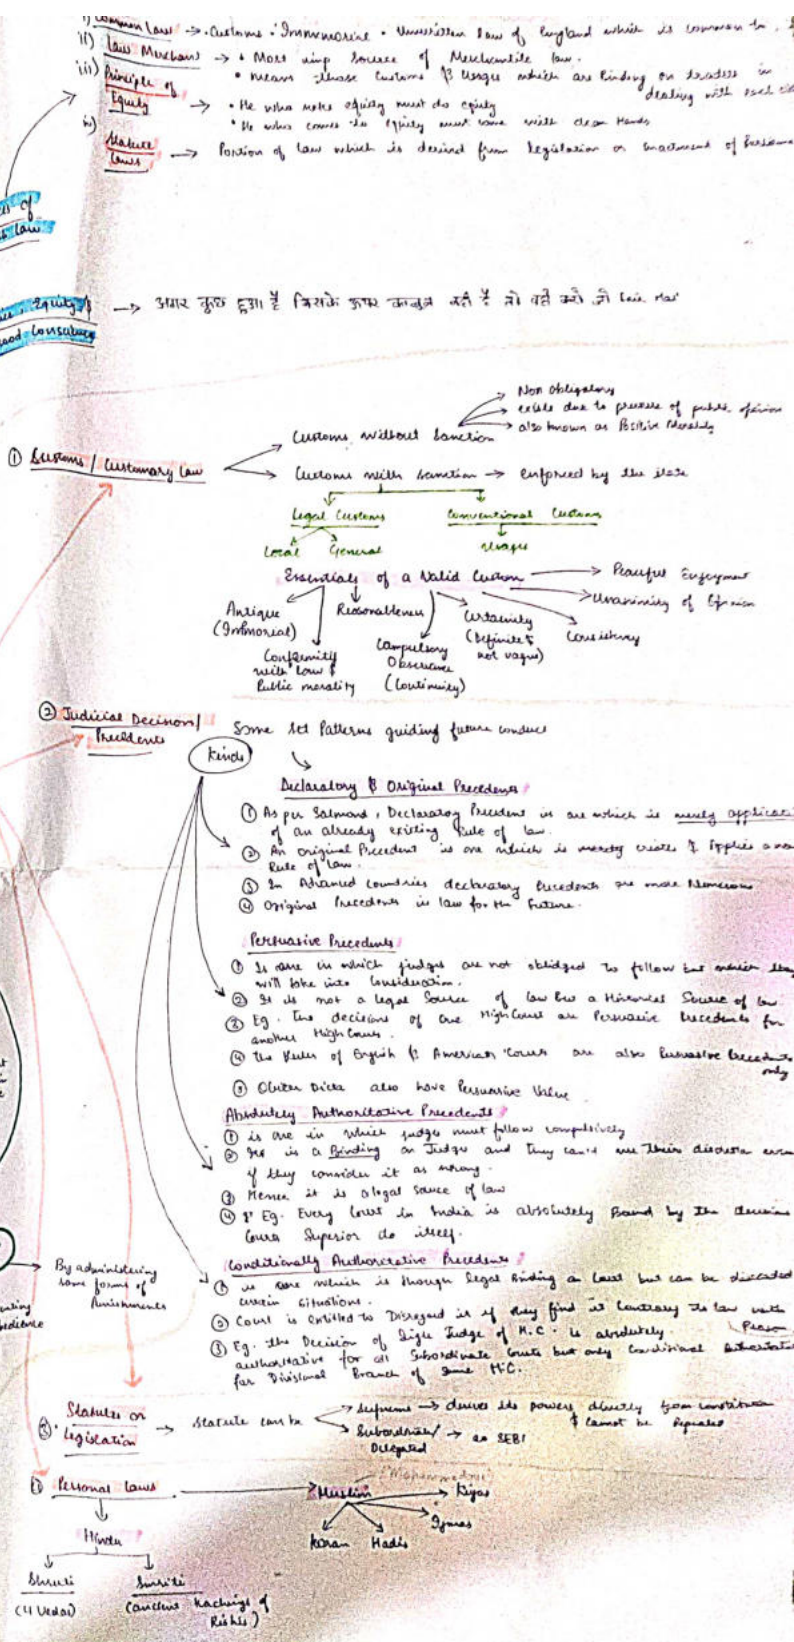 i) Common Law → • Customs • Immemorial • Unwritten law of England which is common to
ii) Law Merchant → • Most imp Source of Mercantile law.
• means those Customs & Usages which are Binding on traders in
dealing with each
iii) Principle of
Equity → • He who seeks equity must do equity
• He who comes to equity must come with clean Hands
iv) Statute
Laws → Portion of law which is derived from legislation or enactment of
of
law
Equity &
Good Conscience → अगर कुछ हुआ है जिसके ऊपर कानून नहीं है तो वही करो जो
① Customs / Customary Law
Customs without Sanction
Non Obligatory
exists due to pressure of public opinion
also known as Positive Morality
Customs with Sanction → enforced by the state
Legal Customs
Conventional Customs
Local General
Usages
Essentials of a Valid Custom
Peaceful Enjoyment
Unanimity of Opinion
Consistency
Certainity
(Definite &
not vague)
Reasonableness
Antique
(Immorial)
Conformity
with Law &
Public morality
Compulsory
Observance
(Continuity)
② Judicial Decision/
Precedents
Some Set Patterns guiding future conduct
Kinds
Declaratory & Original Precedents
① As per Salmond, Declaratory Precedent is one which is merely
of an already existing Rule of law.
② An original Precedent is one which is merely creates & applies a
Rule of law.
③ In Advanced Countries declaratory Precedents are more Numerous
④ Original Precedents is law for the Future.
Persuasive Precedents
① Is one in which judges are not oblidged to follow but which they
will take into Consideration.
② It is not a legal Source of law but a Historical Source of law
③ Eg. The decisions of one High Court are Persuasive Precedents for
another High Court.
④ The Rules of English & American Courts are also Persuasive Precedents
only
⑤ Obiter Dicta also have Persuasive Value
Absolutely Authoritative Precedents
① is one in which judges must follow compulsively
② It is a Binding on Judges and they can't use their discretion even
if they consider it as wrong.
③ Hence it is a legal source of law
④ Eg. Every Court in India is absolutely Bound by the decisions
Court Superior to itself.
Conditionally Authoritative Precedents
① is one which is though legal Binding on Court but can be
certain situations.
② Court is entitled to Disregard it if they find it Contrary to law with
Reason
③ Eg. the Decision of Single Judge of H.C. is absolutely
authoritative for all Subordinate Courts but only Conditional
for Divisional Branch of same H.C.
By administering
some forms of
Punishments
③ Statutes or
Legislation → Statute can be
Supreme → derives its powers directly from constitution
& cannot be Repealed
Subordinate/
Delegated → eg SEBI
④ Personal Laws
Hindu
Shruti
(4 Vedas)
Smriti
(ancient teachings of
Rishis)
(Mohammedans)
Muslim
Kiyas
Ijmas
Koran Hadis